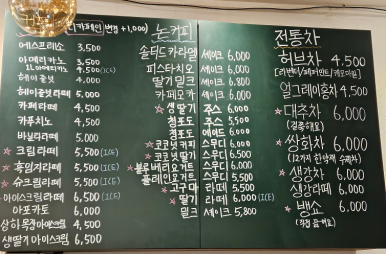 디카페인 변경 +1,000)
에스프레소 3,500
아메리카노 3,500
4,500 (ICE)
헤이즐넛 4,000
헤이즐넛라떼 5,000
카페라떼 4,500
카푸치노 4,500
바닐라라떼 5,000
크림라떼 5,500 (ICE)
흑임자라떼 5,500 (ICE)
슈크림라떼 5,500 (ICE)
아이스크림라떼 6,500
아포카토 6,000
상하목장아이스크림 4,500
생딸기 아이스크림 6,500
논커피
솔티드카라멜 셰이크 6,000
피스타치오 셰이크 6,000
딸기밀크 셰이크 6,800
카페모카 셰이크 6,000
생딸기 주스 6,000
청포도 주스 5,500
청포도 에이드 6,000
코코넛커피 스무디 6,000
코코넛딸기 스무디 6,500
블루베리요거트 스무디 6,000
플레인요거트 스무디 5,500
고구마 라떼 5,500
딸기 라떼 6,000 (ICE)
밀크 셰이크 5,800
전통차
허브차 4,500
얼그레이홍차 4,500
대추차 6,000
쌍화차 6,000
(12가지 한약재 수제차)
생강차 6,000
생강라떼 6,000
뱅쇼 6,000